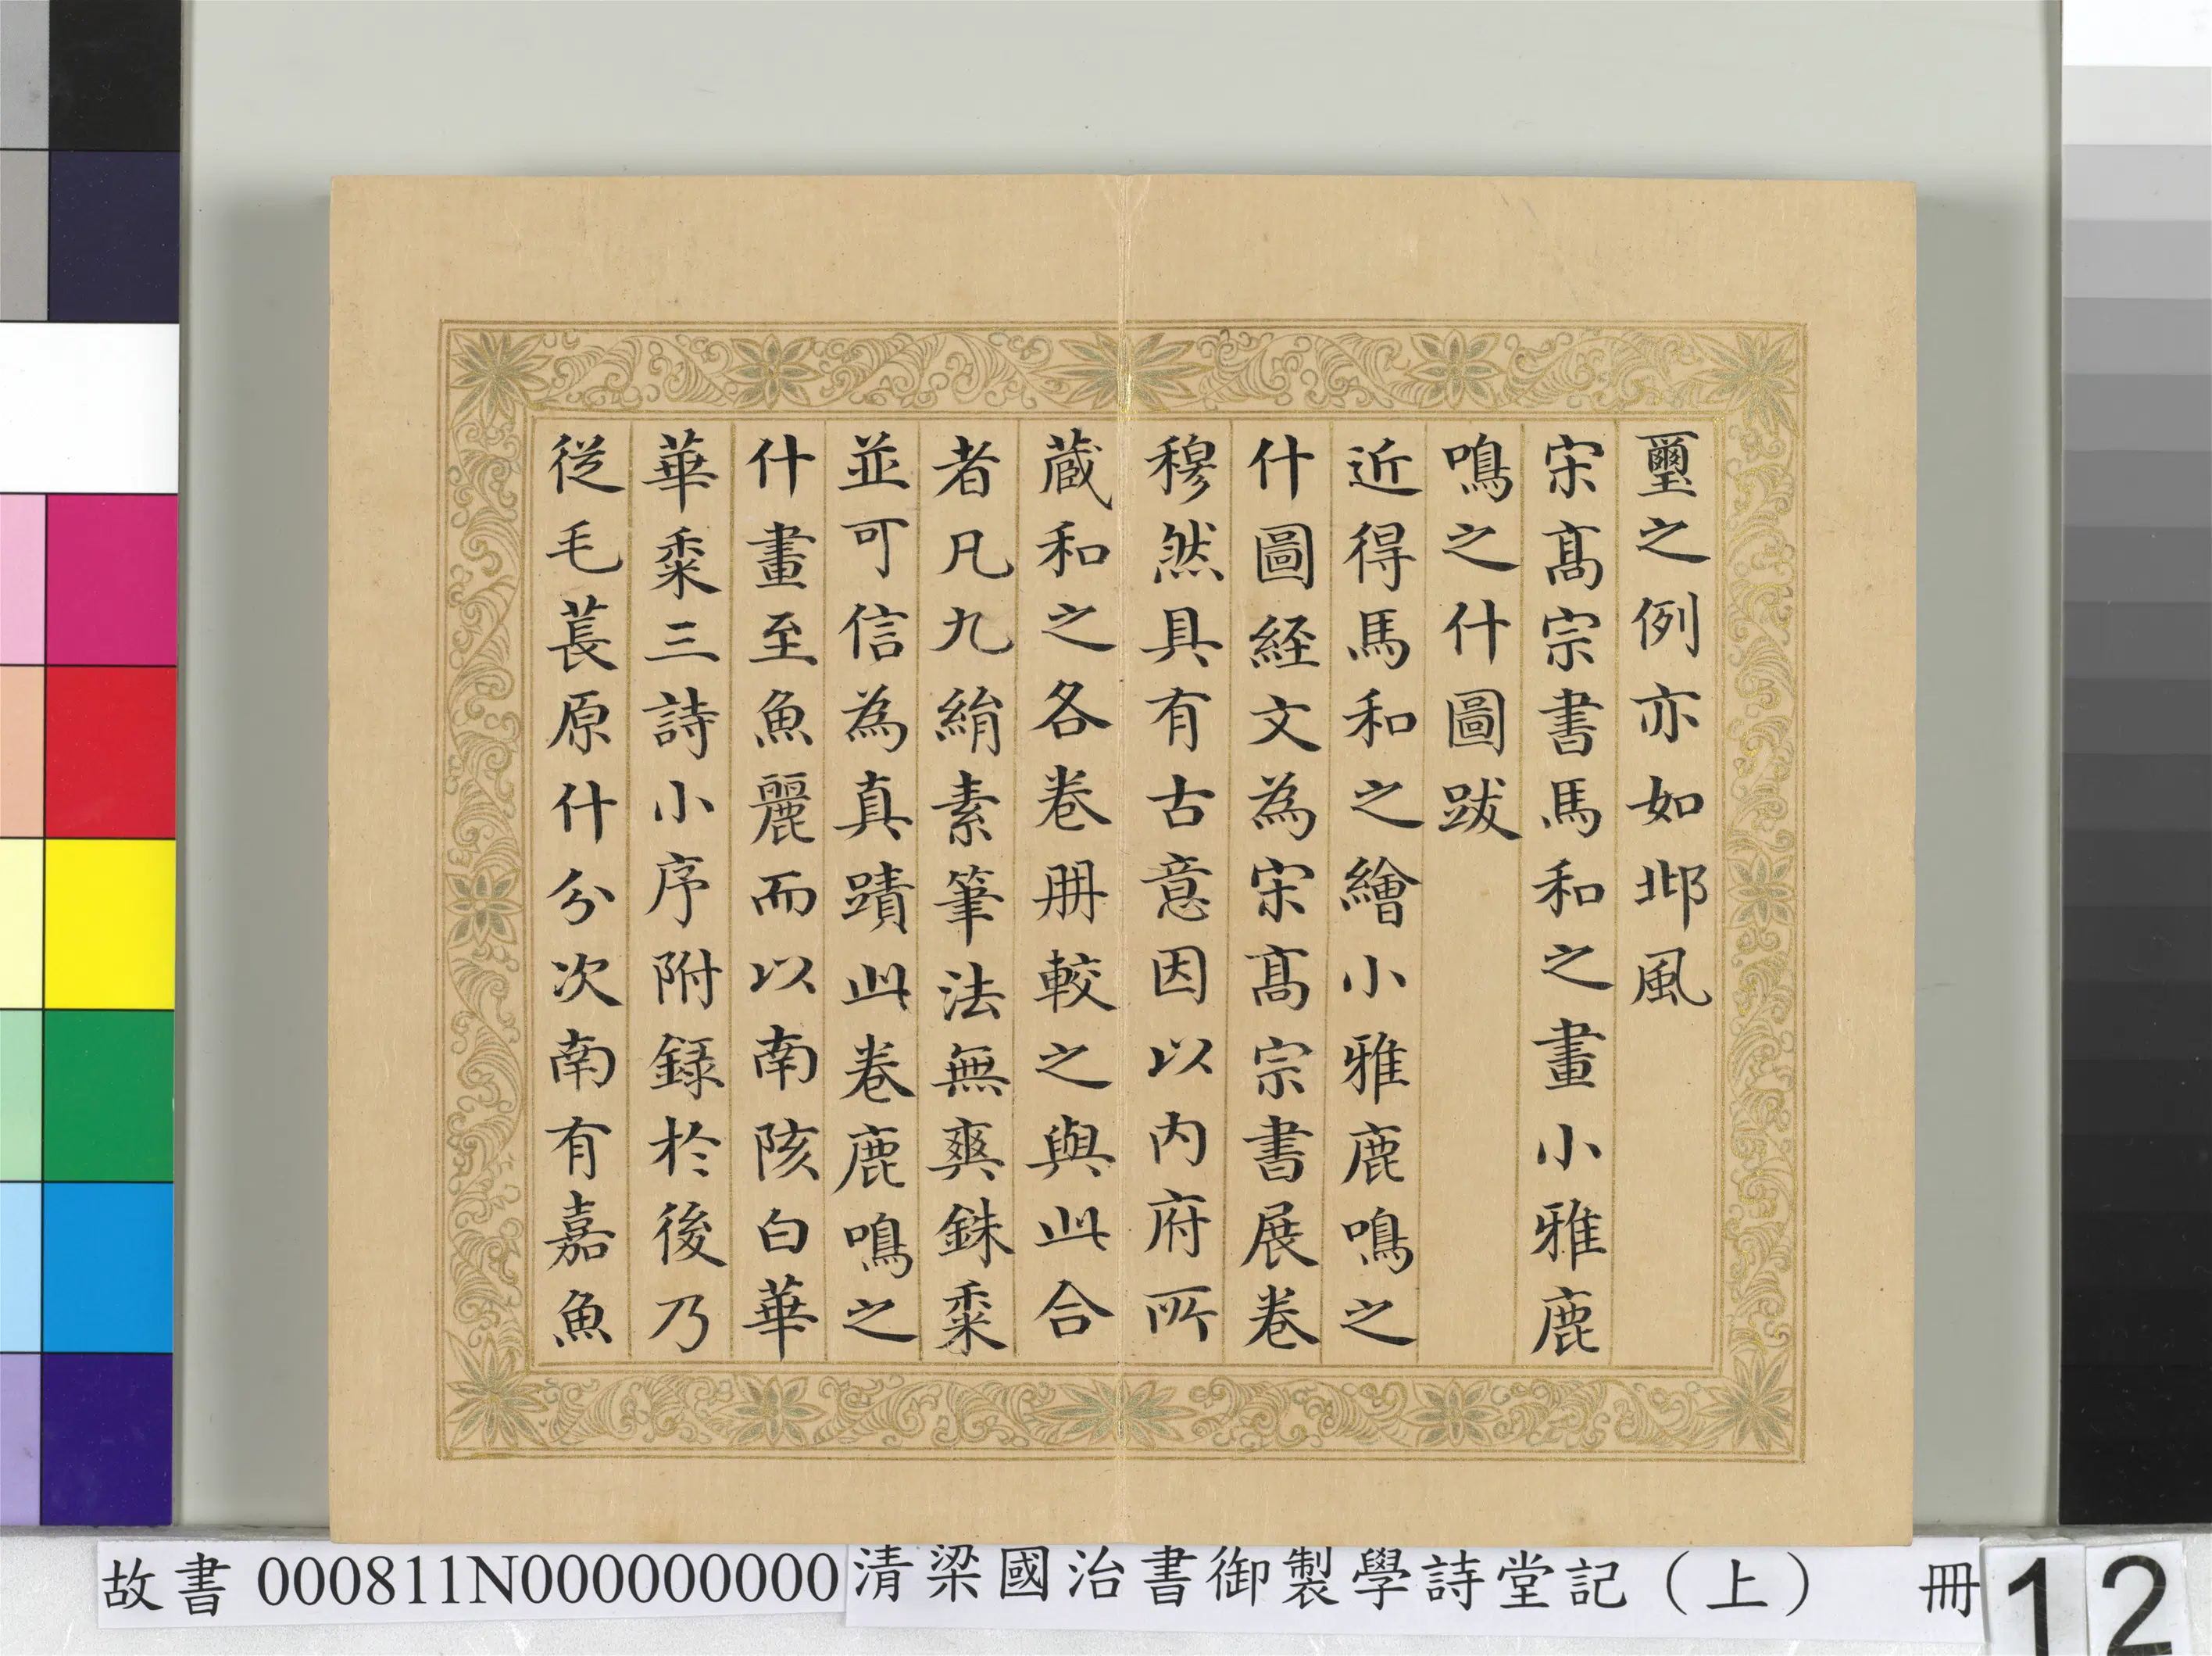 璽之例亦如邶風
宋髙宗書馬和之畫小雅鹿
鳴之什圖跋
近得馬和之繪小雅鹿鳴之
什圖經文為宋髙宗書展卷
穆然具有古意因以内府所
蔵和之各卷册較之與此合
者凡九絹素筆法無爽銖黍
並可信為真蹟此卷鹿鳴之
什畫至魚麗而以南陔白華
華黍三詩小序附録於後乃
從毛萇原什分次南有嘉魚
故書 000811N000000000 清梁國治書御製學詩堂記（上） 冊 12